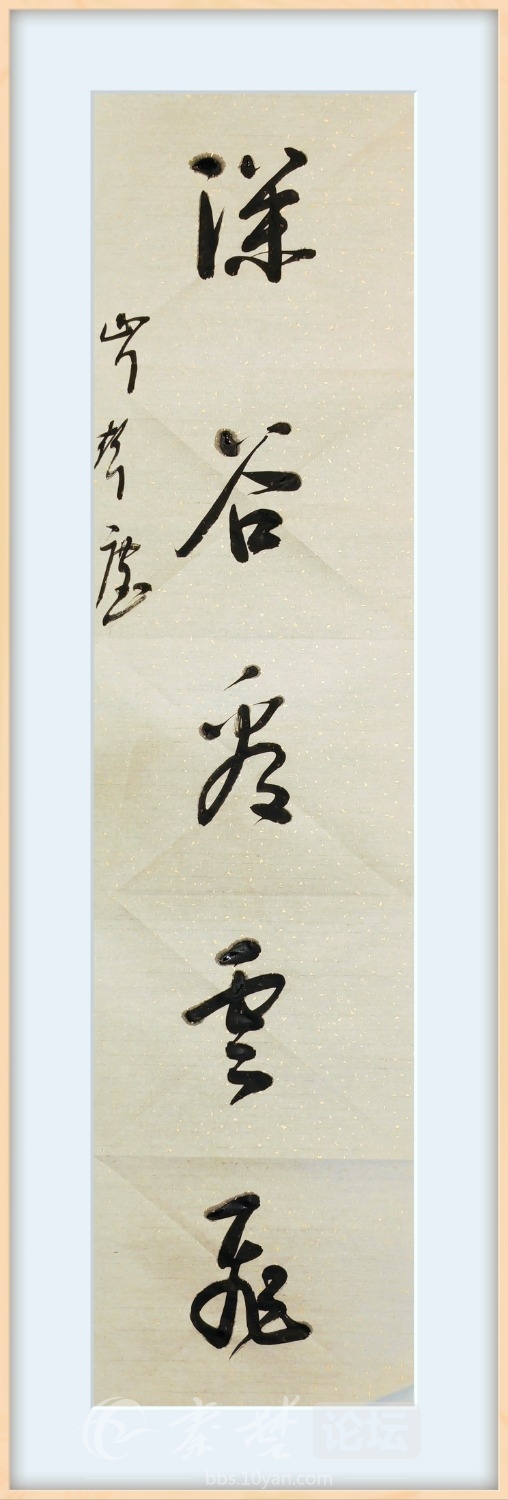 深谷看雲飛
秦楚论坛
bbs.10yan.com